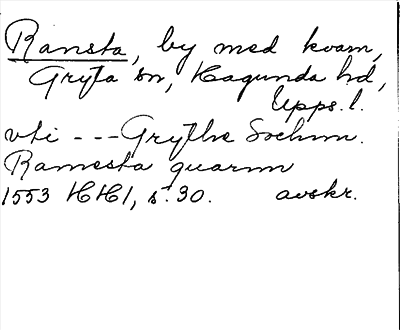 Ransta, by med kvarn,
Gryta sn, Hagunda hd,
Upps. l.
vti --- Grythe Sochnn.
Ramesta quarnn
1553 HH1, s. 30. avskr.